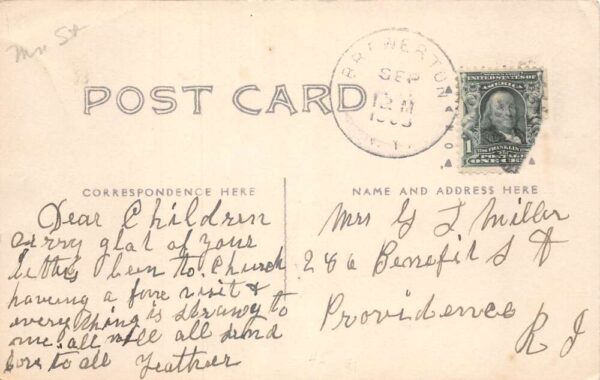 Mrs St
BREWERTON
SEP
12 M
N.Y.
UNITED STATES OF
AMERICA
1
FRANKLIN
POSTAGE
ONE CENT
POST CARD
CORRESPONDENCE HERE
NAME AND ADDRESS HERE
Dear Children
glat of your
been to Church
having a fine visit &
everything is to
me all well all send
love to all Feather
Mrs G L Miller
286 Benefit St
Providence
R I